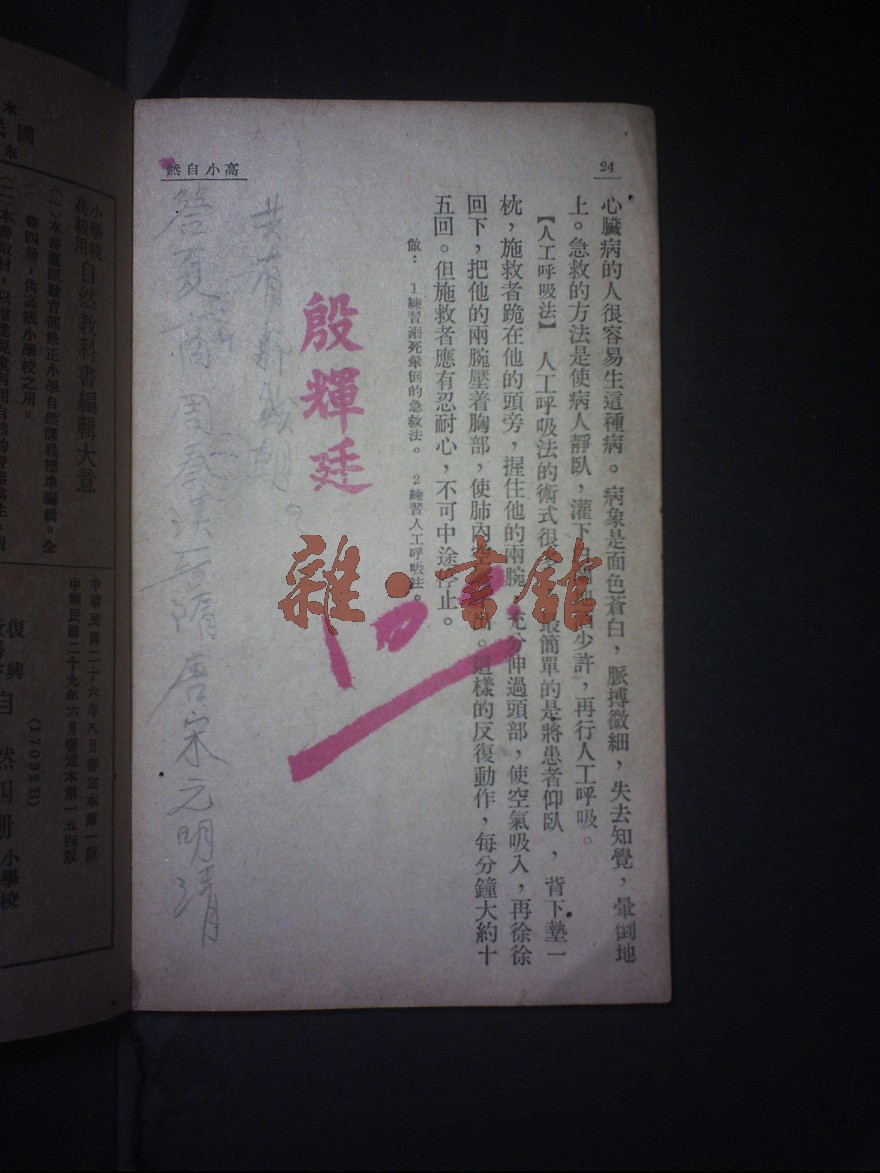 24
高小自然
心臟病的人很容易生這種病。病象是面色蒼白，脈搏微細，失去知覺，暈倒地
上。急救的方法是使病人靜臥，灌下少許，再行人工呼吸。
【人工呼吸法】 人工呼吸法的術式很多最簡單的是將患者仰臥，背下墊一
枕，施救者跪在他的頭旁，握住他的兩腕，充分伸過頭部，使空氣吸入，再徐徐
回下，把他的兩腕壓着胸部，使肺內空出。這樣的反復動作，每分鐘大約十
五回。但施救者應有忍耐心，不可中途停止。
做： 1練習溺死暈倒的急救法。 2練習人工呼吸法。
殷輝廷
共有
答夏商周秦漢晉隋唐宋元明清
雜·書館
小學校
高級用
自然教科書編輯大意
(一)本書遵照教育部修正小學自然課程標準編輯。全
書四册，供高級小學校之用。
中華民國二十六年八月審定本第一版
中華民國二十九年六月審定本第一五四版
(17092B)
復興
自然四册
小學校
國